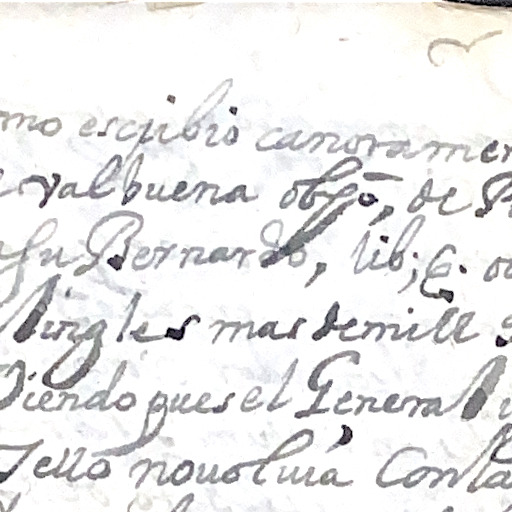 mo escribio canoramen
e valbuena obpo, de P
su Bernardo, lib; 6. o
singles mas demill
Viendo pues el General
Tello no voluia Con la